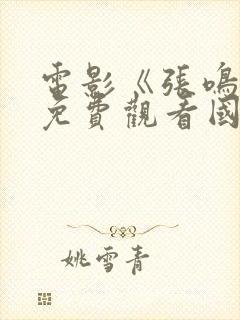 電影《張鳴
免費觀看國
姚雪青